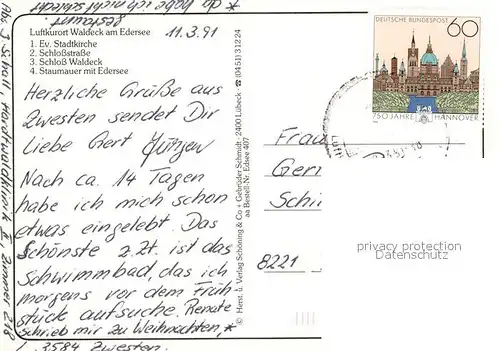 * da habe ich mich selbst
gesteuert.
Luftkurort Waldeck am Edersee 11.3.91
1. Ev. Stadtkirche
2. Schloßstraße
3. Schloß Waldeck
4. Staumauer mit Edersee
Herzliche Grüße aus
Zwesten sendet Dir
Liebe Gert Jürgen
Nach ca. 14 Tagen
habe ich mich schon
etwas eingelebt. Das
Schönste z.Zt. ist das
Schwimmbad, das ich
morgens vor dem Früh
stück aufsuche. Renate
schrieb mir zu Weihnachten, *
3584 Zwesten.
Abs. J. Schall Hardtwaldklinik II Zimmer 218
© Herst. u. Verlag Schöning & Co + Gebrüder Schmidt · 2400 Lübeck · ☎ (0451) 31224
aa Bestell-Nr. Edsee 407
DEUTSCHE BUNDESPOST 60
750 JAHRE HANNOVER
Frau
Ger
Schi
8221
privacy protection
Datenschutz